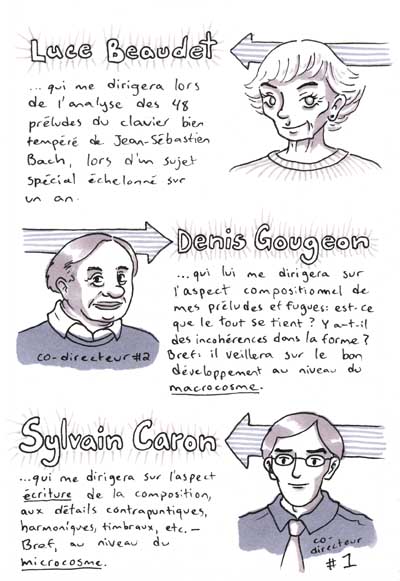 Luce Beaudet
... qui me dirigera lors
de l'analyse des 48
préludes du clavier bien
tempéré de Jean-Sébastien
Bach, lors d'un sujet
spécial échelonné sur
un an.
Denis Gougeon
...qui lui me dirigera sur
l'aspect compositionnel de
mes préludes et fugues: est-ce
que le tout se tient? Y a-t-il
des incohérences dans la forme?
Bref: il veillera sur le bon
développement au niveau du
macrocosme.
co-directeur #2
Sylvain Caron
...qui me dirigera sur l'aspect
écriture de la composition,
aux détails contrapuntiques,
harmoniques, timbraux, etc. —
Bref, au niveau du
microcosme.
co-
directeur
#1